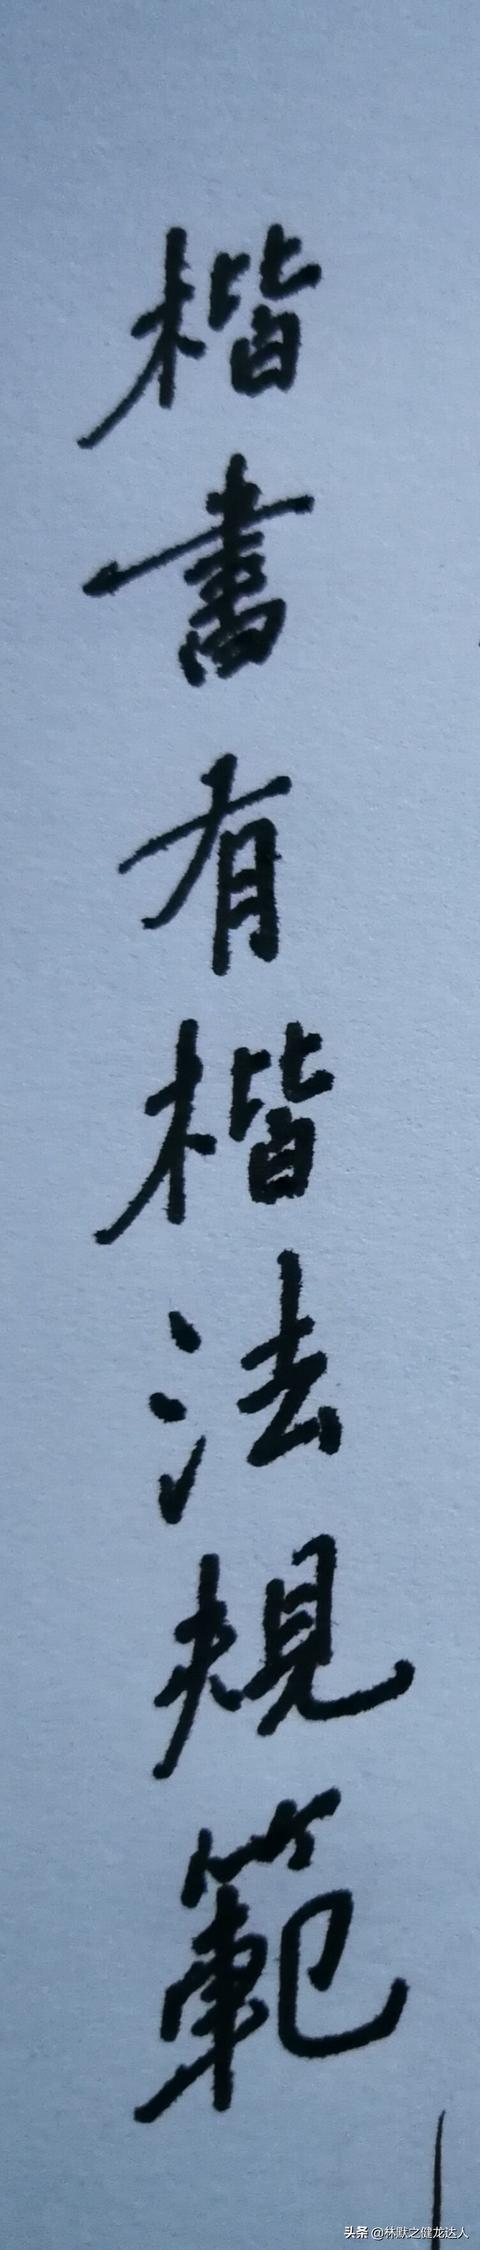 楷書有楷法規範
头条 @林默之健龙达人